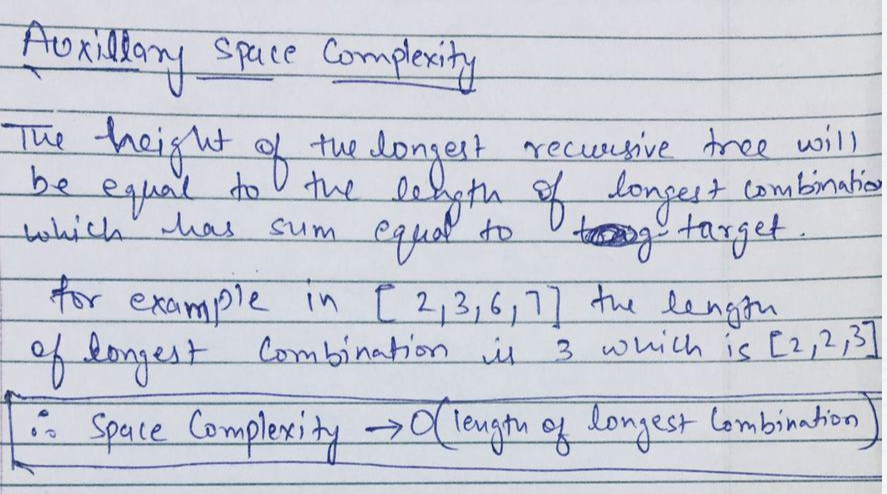 Auxillary Space Complexity
The height of the longest recursive tree will
be equal to the length of longest combination
which has sum equal to target.
for example in [2,3,6,7] the length
of longest Combination is 3 which is [2,2,3]
∴ Space Complexity → O(length of longest Combination)